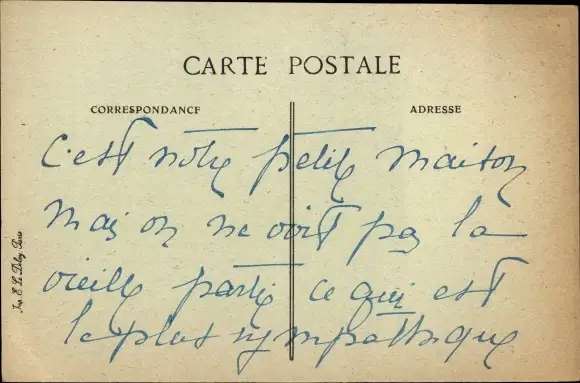 CARTE POSTALE
CORRESPONDANCE
ADRESSE
C'est notre petite maison
mais on ne voit pas la
vieille partie ce qui est
le plus sympathique
Imp. E. Le Deley, Paris